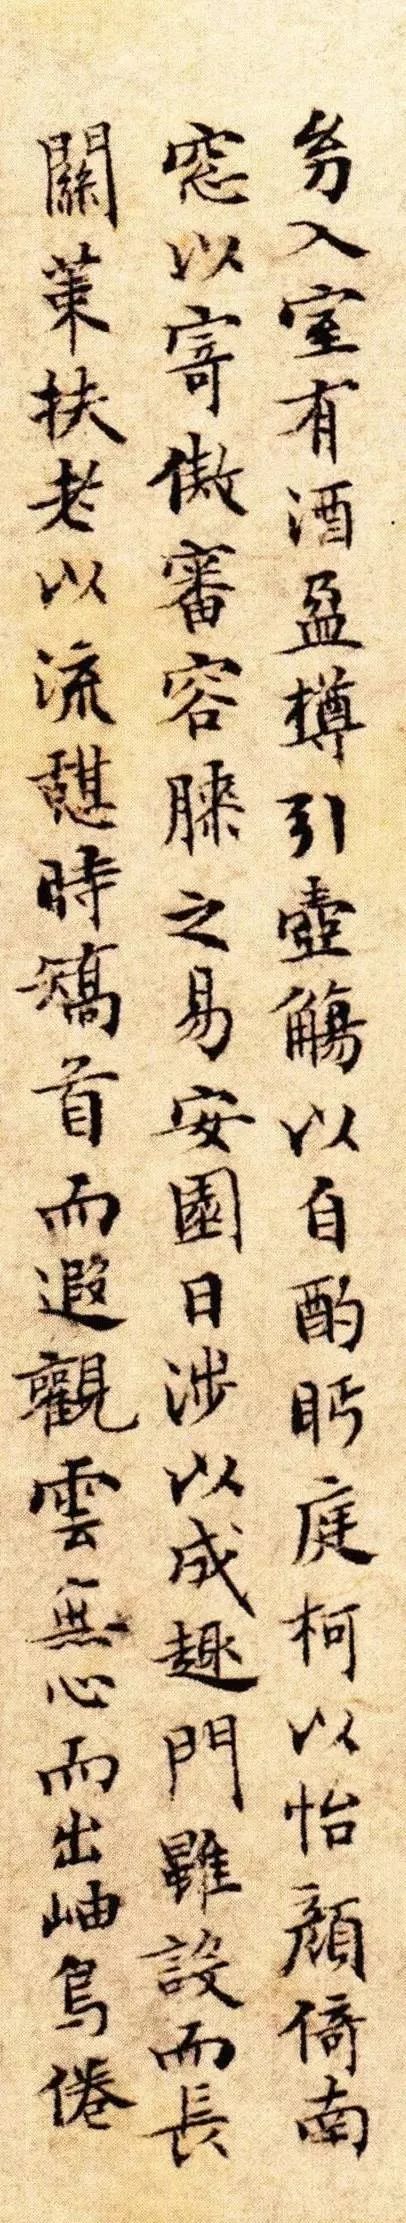 㓜入室有酒盈樽引壺觴以自酌眄庭柯以怡顏倚南
窓以寄傲審容膝之易安園日涉以成趣門雖設而長
關策扶老以流憩時矯首而遐觀雲無心而出岫鳥倦